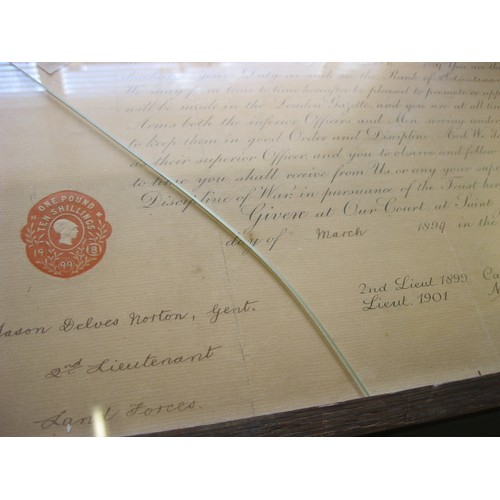 You are the
Duty as such in the Rank of
We may from time to time hereafter be pleased to promote or
will be made in the London Gazette, and you are at all
Arms both the inferior Officers and Men serving under
to keep them in good Order and Discipline. And We
as their superior Officer and you to observe and follow
to time you shall receive from Us, or any your
Discipline of War, in pursuance of the Trust
Given at Our Court at Saint
day of March 1899 in the
ONE POUND
TEN SHILLINGS
2nd Lieut 1899
Lieut. 1901
Mason Delves Norton, Gent.
2nd Lieutenant
Land Forces.